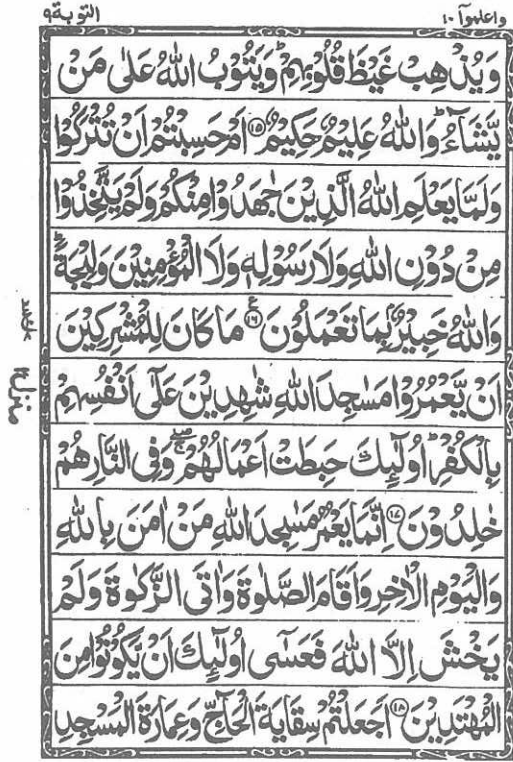 واعلموآ ١٠
التوبة ٩
وَيُذْهِبْ غَيْظَ قُلُوْبِهِمْ ؕ وَيَتُوْبُ اللّٰهُ عَلٰى مَنْ
يَّشَآءُ ؕ وَاللّٰهُ عَلِيْمٌ حَكِيْمٌ ﴿۱۵﴾ اَمْ حَسِبْتُمْ اَنْ تُتْرَكُوْا
وَلَمَّا يَعْلَمِ اللّٰهُ الَّذِيْنَ جٰهَدُوْا مِنْكُمْ وَلَمْ يَتَّخِذُوْا
مِنْ دُوْنِ اللّٰهِ وَلَا رَسُوْلِهٖ وَلَا الْمُؤْمِنِيْنَ وَلِيْجَةً ؕ
وَاللّٰهُ خَبِيْرٌۢ بِمَا تَعْمَلُوْنَ ﴿۱۶﴾ؑ مَا كَانَ لِلْمُشْرِكِيْنَ
اَنْ يَّعْمُرُوْا مَسٰجِدَ اللّٰهِ شٰهِدِيْنَ عَلٰٓى اَنْفُسِهِمْ
بِالْكُفْرِ ؕ اُولٰٓئِكَ حَبِطَتْ اَعْمَالُهُمْ ۖۚ وَفِى النَّارِ هُمْ
خٰلِدُوْنَ ﴿۱۷﴾ اِنَّمَا يَعْمُرُ مَسٰجِدَ اللّٰهِ مَنْ اٰمَنَ بِاللّٰهِ
وَالْيَوْمِ الْاٰخِرِ وَاَقَامَ الصَّلٰوةَ وَاٰتَى الزَّكٰوةَ وَلَمْ
يَخْشَ اِلَّا اللّٰهَ فَعَسٰٓى اُولٰٓئِكَ اَنْ يَّكُوْنُوْا مِنَ
الْمُهْتَدِيْنَ ﴿۱۸﴾ اَجَعَلْتُمْ سِقَايَةَ الْحَآجِّ وَعِمَارَةَ الْمَسْجِدِ
منزل ٢